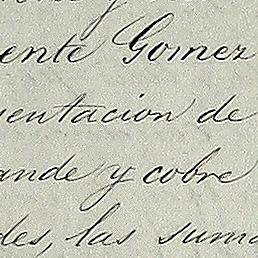 ente Gomez
uentacion de
ande y cobre
des, las suma